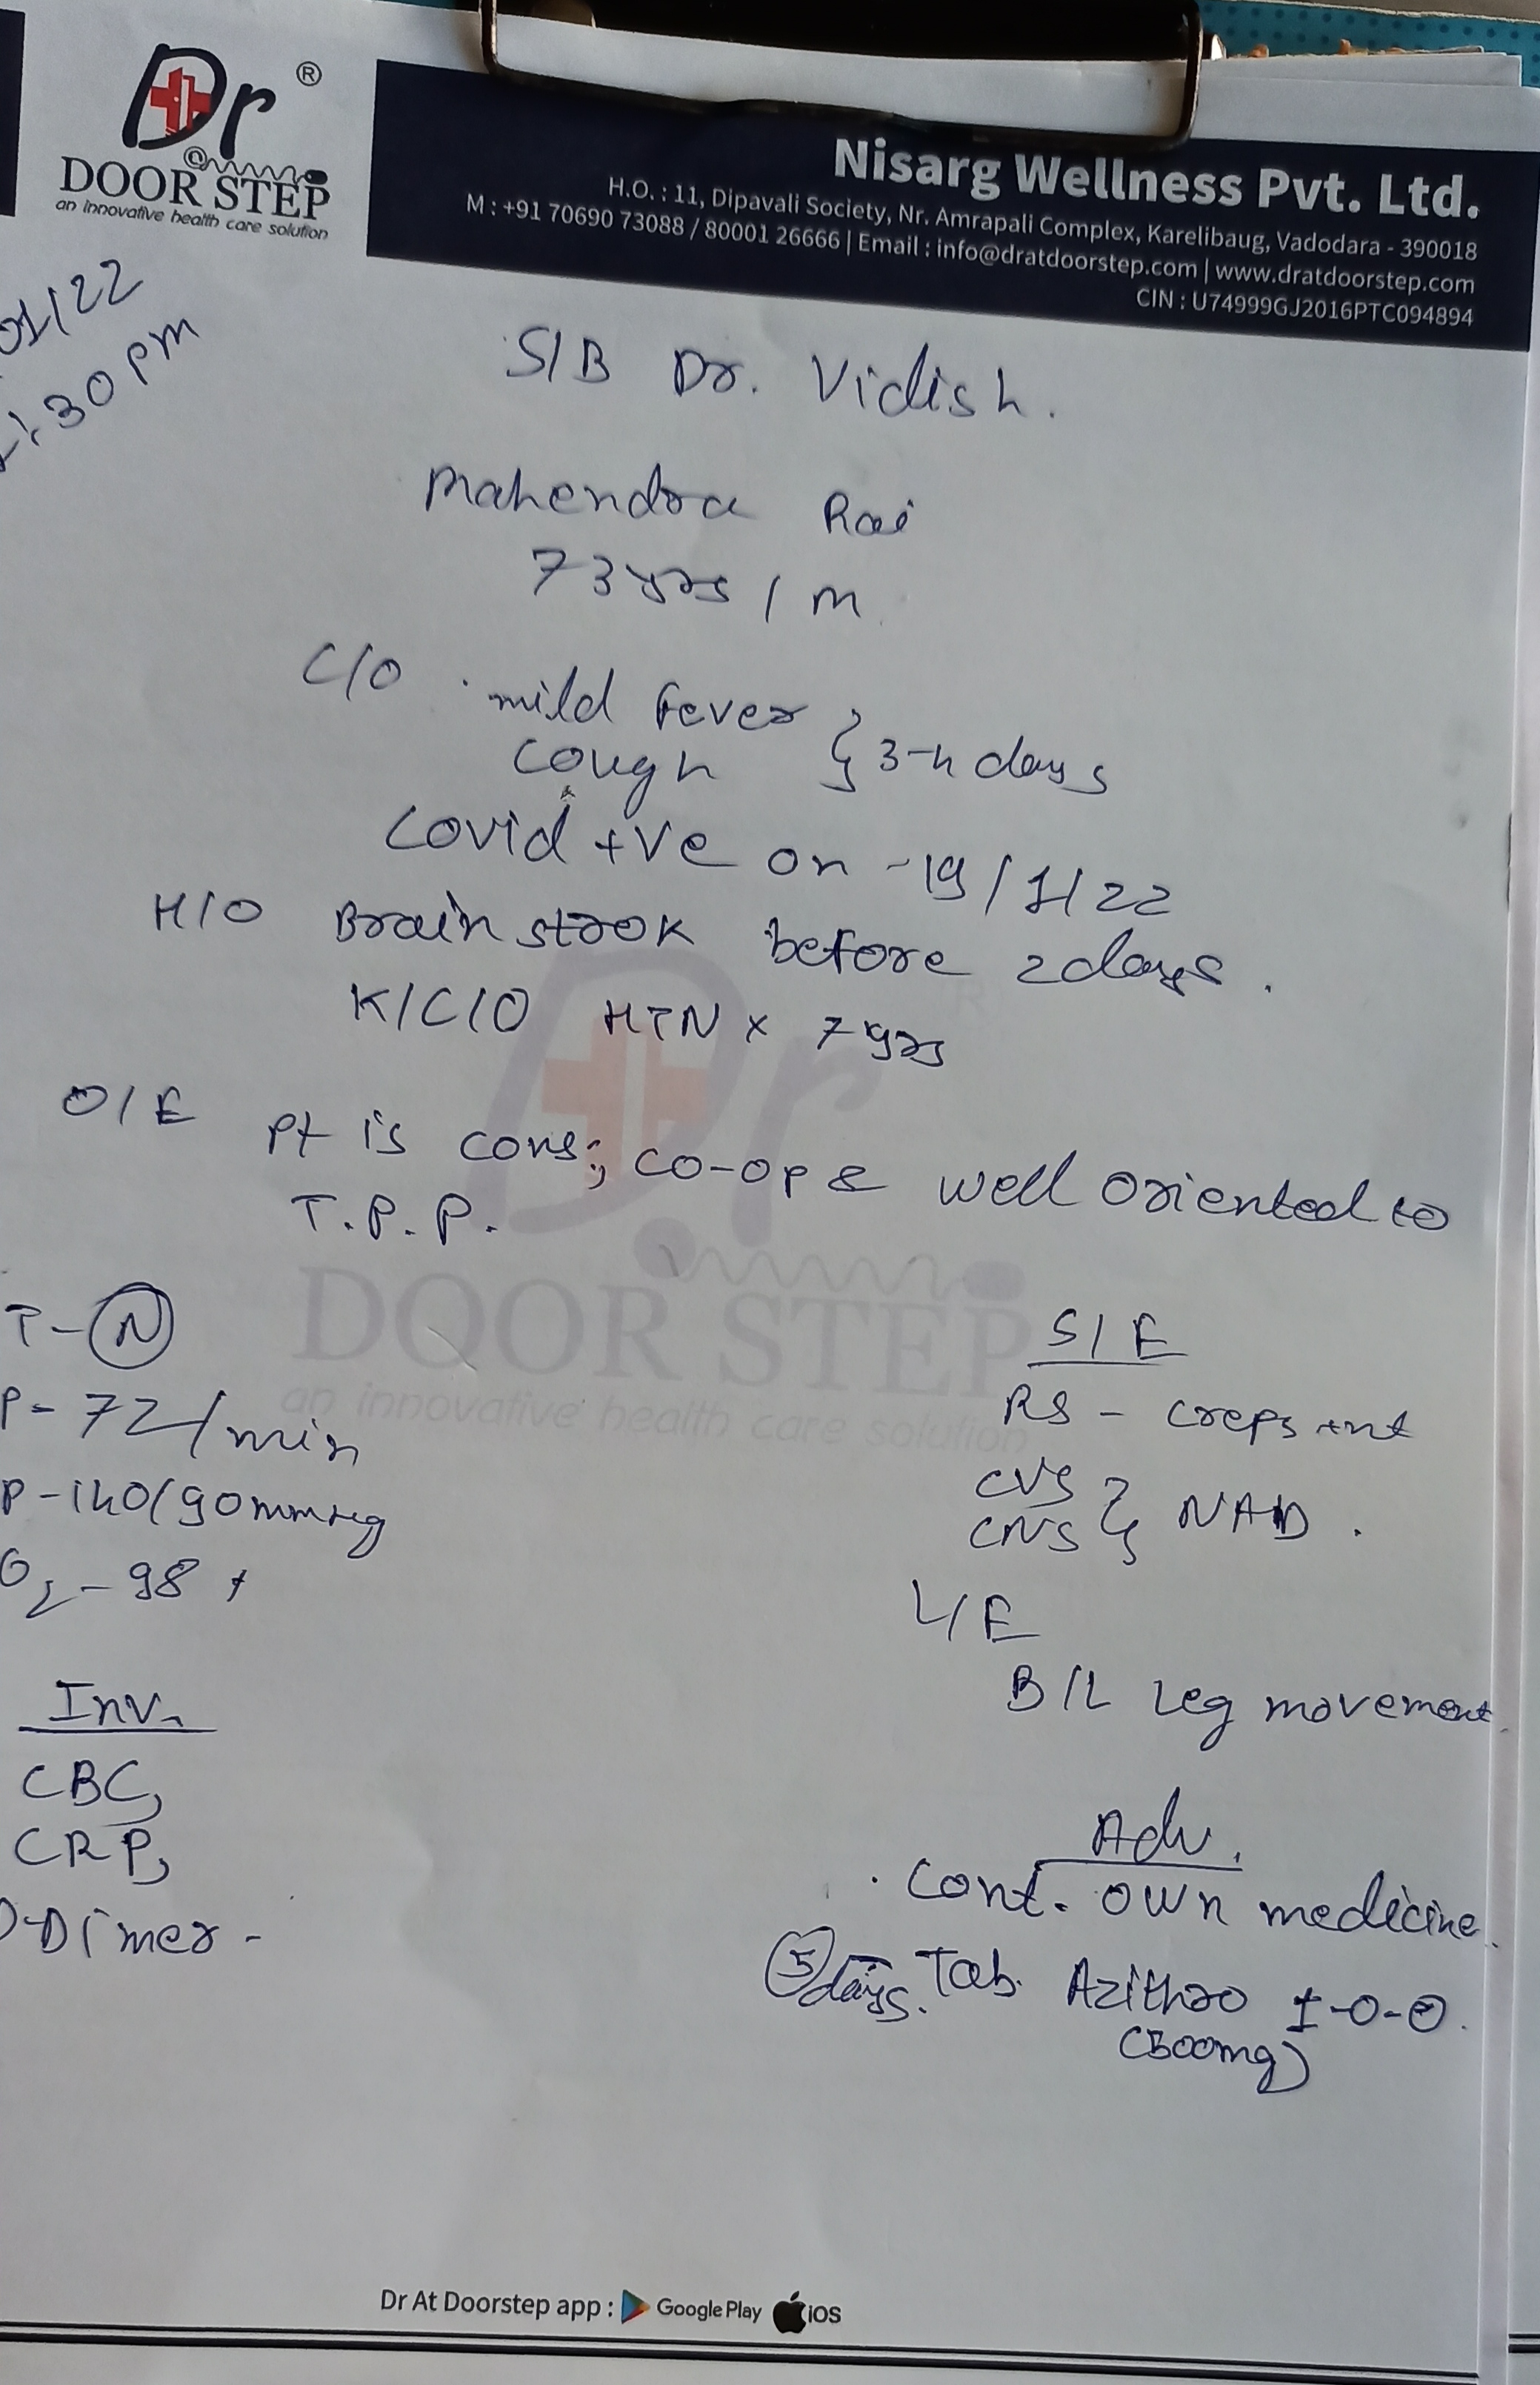 Dr ®
@
DOOR STEP
an innovative health care solution
Nisarg Wellness Pvt. Ltd.
H.O. : 11, Dipavali Society, Nr. Amrapali Complex, Karelibaug, Vadodara - 390018
M : +91 70690 73088 / 80001 26666 | Email : info@dratdoorstep.com | www.dratdoorstep.com
CIN : U74999GJ2016PTC094894
01/22
:30 pm
S/B Dr. Vidish.
Mahendra Rai
73 yrs / M
C/O . mild fever
cough } 3-4 days
Covid +ve on -19/1/22
H/O Brain strok before 2 days.
K/C/O HTN x 7 yrs
O/E pt is cons; co-op & well oriented to
T.P.P.
T - N
P - 72/min
P - 140/90 mmHg
O2 - 98
S/E
RS - creps +nt
CVS
CNS } NAD.
L/E
B/L Leg movement
Inv.
CBC,
CRP,
D-Dimer -
Adv.
. Cont. own medicine.
5 days. Tab. Azithro 1-0-0.
(500mg)
Dr
DOOR STEP
an innovative health care solution
Dr At Doorstep app : Google Play iOS